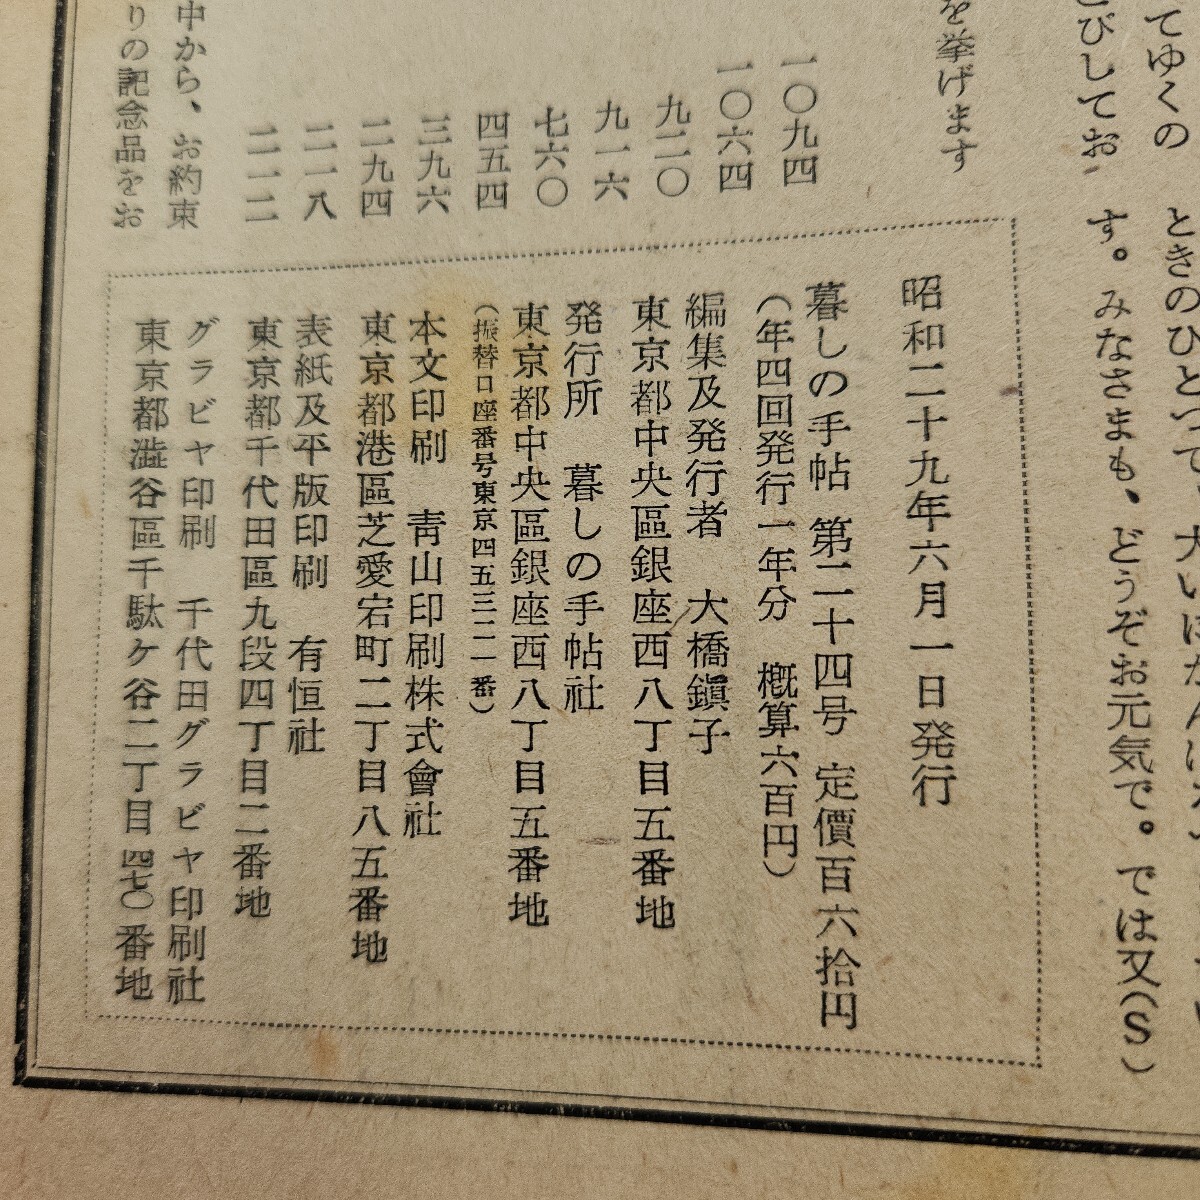 てゆくの
ときのひとつで、大いばか
こびしてお
す。みなさまも、どうぞお元気で。では又(S)
を挙げます
一〇九四
一〇六四
九二〇
九一六
七六〇
四五四
三九六
二九四
二一八
二一二
中から、お約束
りの記念品をお
昭和二十九年六月一日発行
暮しの手帖 第二十四号 定價百六拾円
(年四回発行一年分 概算六百円)
編集及発行者 大橋鎭子
東京都中央區銀座西八丁目五番地
発行所 暮しの手帖社
東京都中央區銀座西八丁目五番地
(振替口座番号東京四五三二一番)
本文印刷 青山印刷株式會社
東京都港區芝愛宕町二丁目八五番地
表紙及平版印刷 有恒社
東京都千代田區九段四丁目二番地
グラビヤ印刷 千代田グラビヤ印刷社
東京都澁谷區千駄ケ谷二丁目四七〇番地